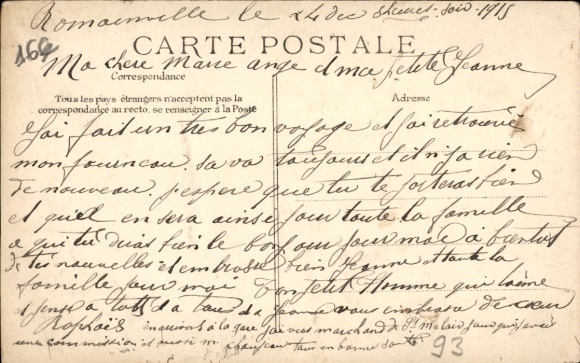 Romainville le 24 dec 8heures soir 1915
CARTE POSTALE
166
Ma chere Marie ange et ma petite Jeanne
Correspondance
Tous les pays étrangers n'acceptent pas la
correspondance au recto, se renseigner à la Poste
Adresse
J'ai fait un tres bon voyage et j'ai retrouvé
mon fourneau. sa va toujours et il n'y a rien
de nouveau. j'espere que tu te porteras bien
et qu'il en sera ainsi pour toute la famille
a qui tu diras bien le bonjour pour moi a bientot
de tes nouvelles et embrasse bien Jeanne et toute la
famille pour moi ton petit Homme qui t'aime
et pense a toi a Jeanne vous embrasse de cœur
Raphaël en arrivant a la gare j'ai vu marchand de St malo
une commission et aussi en bonne
93